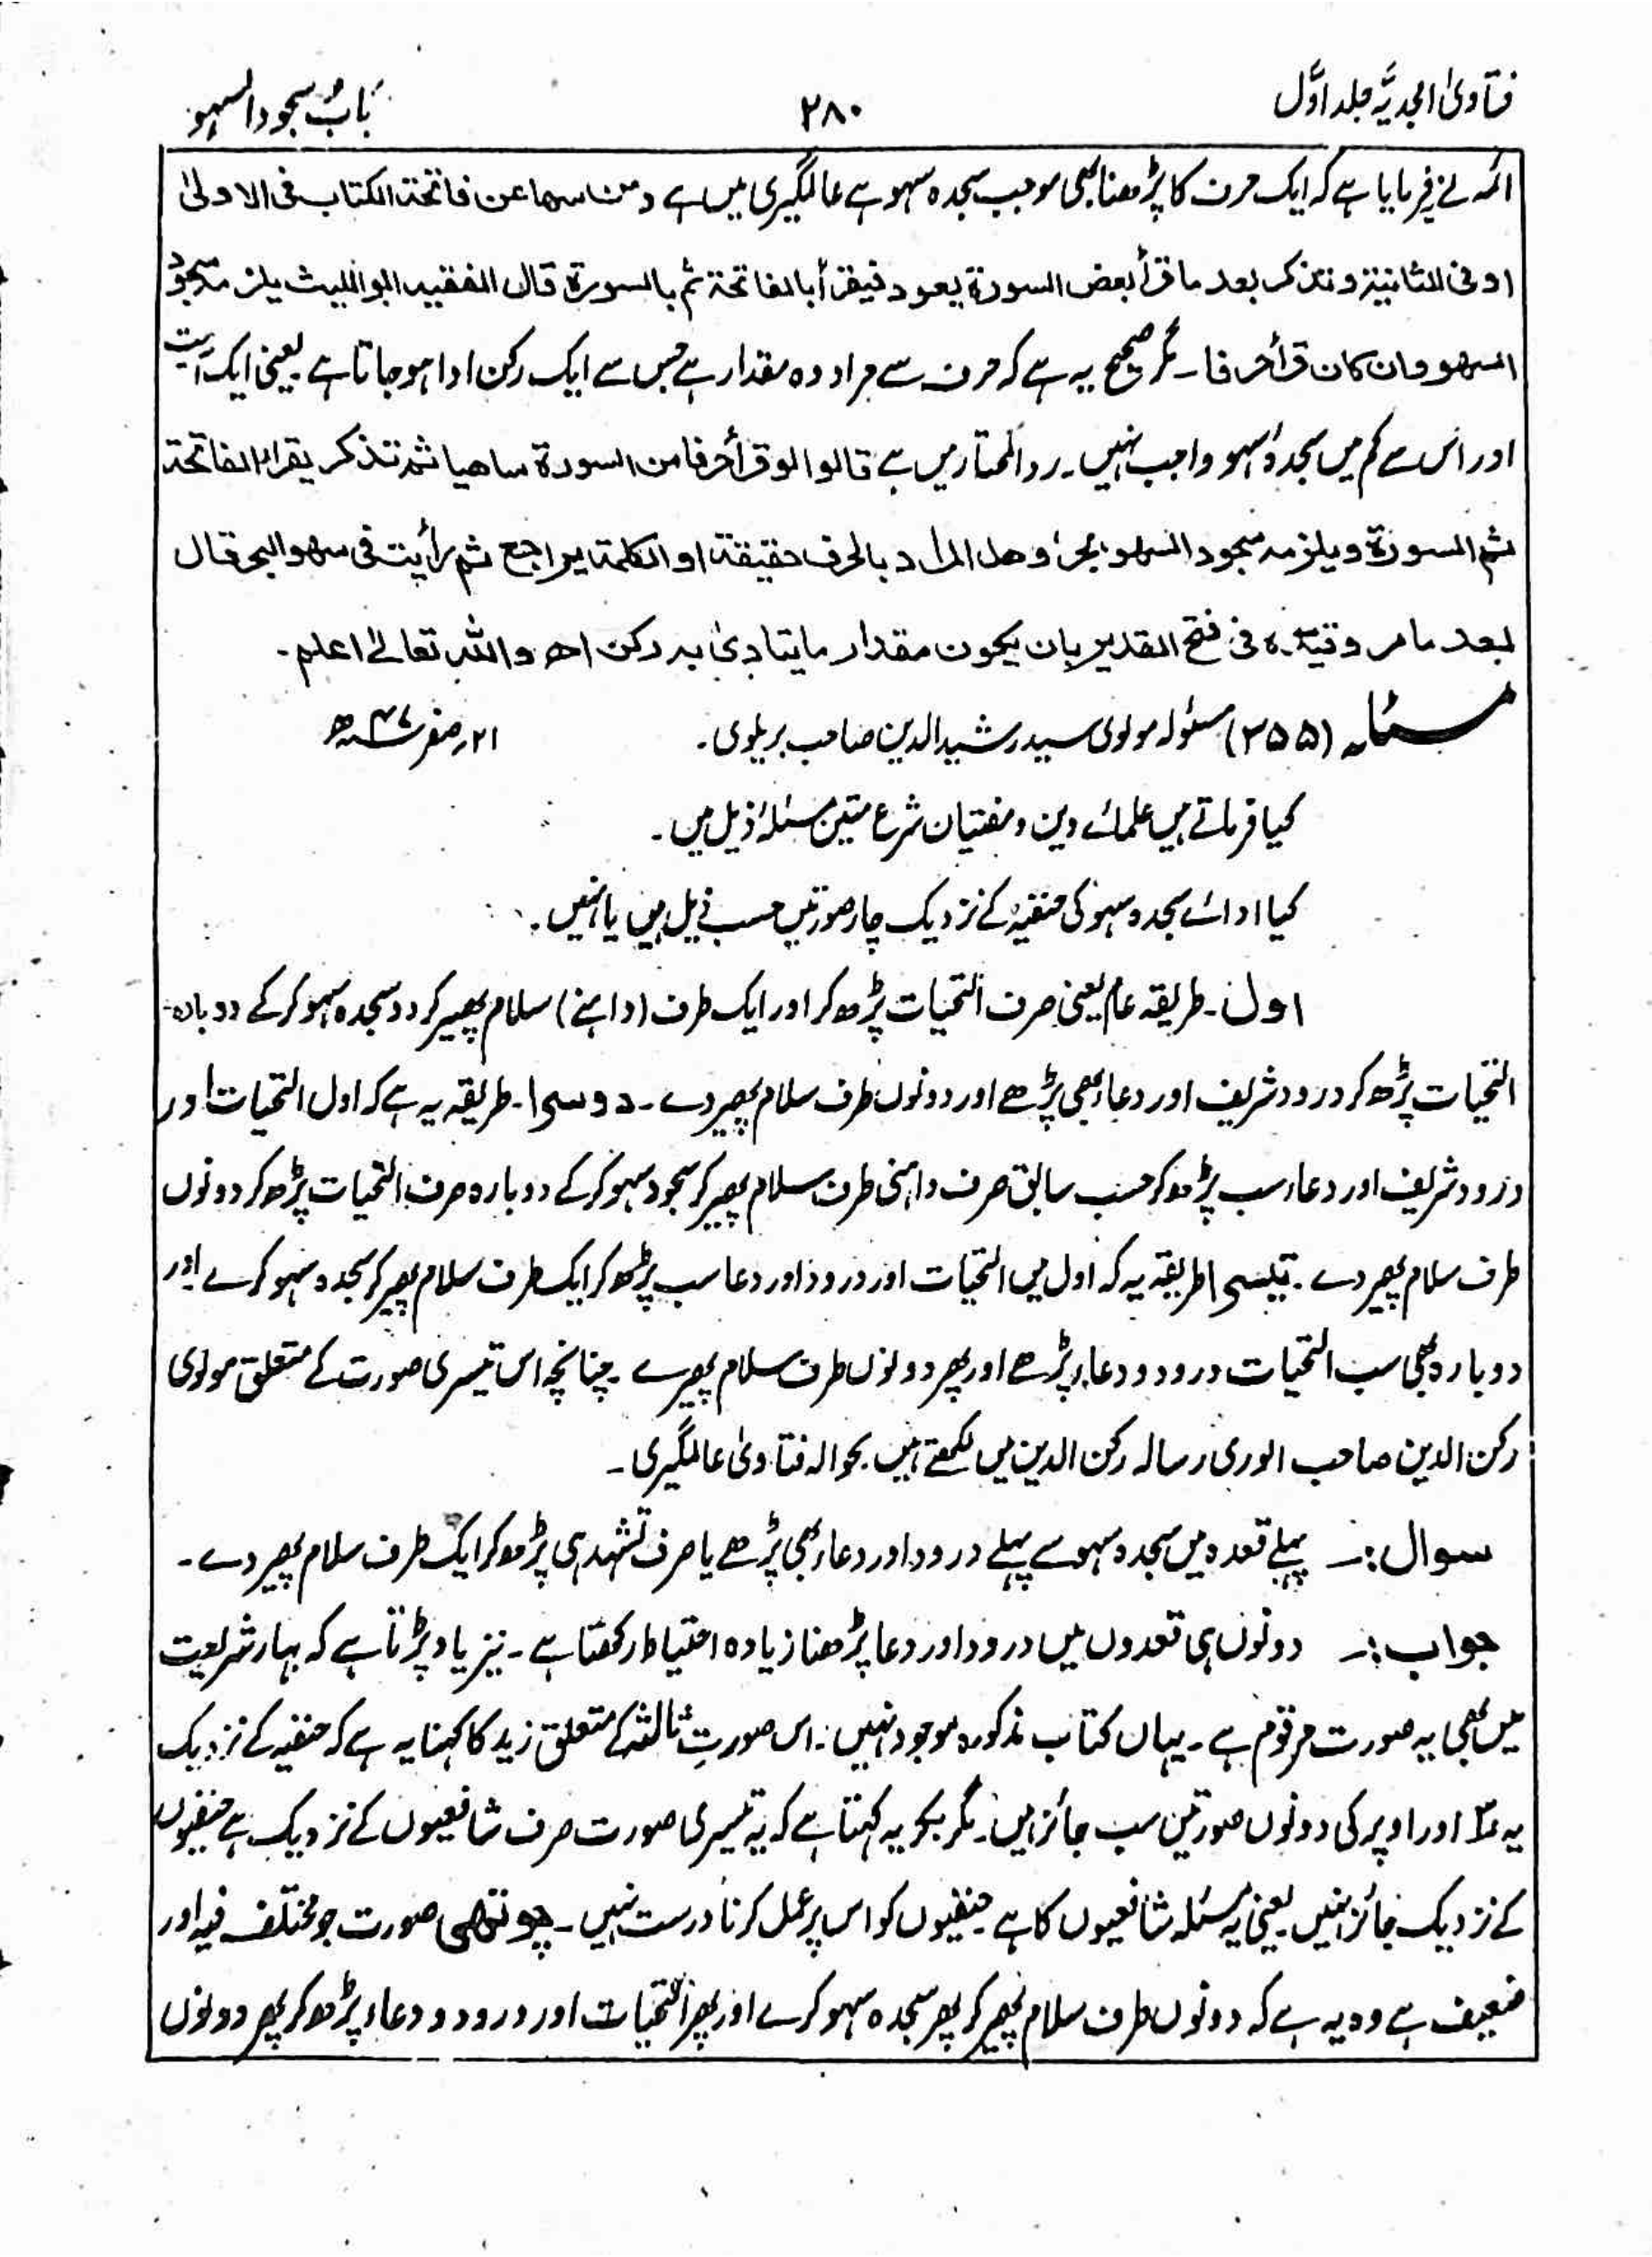 فتاویٰ امجدیہ جلد اوّل
۲۸۰
بَابُ سجود السہو
ائمہ نے فرمایا ہے کہ ایک حرف کا پڑھنا بھی موجب سجدہ سہو ہے عالمگیری میں ہے ومن سها عن فاتحة الكتاب فی الاولیٰ
او فی الثانیة وتذکر بعد ما قرأ بعض السورة یعود فیقرأ بالفاتحة ثم بالسورة قال الفقیه ابو اللیث یلزمه سجود
السهو وان کان قرأ حرفا۔ مگر صحیح یہ ہے کہ حرف سے مراد وہ مقدار ہے جس سے ایک رکن ادا ہو جاتا ہے یعنی ایک آیت
اور اس سے کم میں سجدۂ سہو واجب نہیں۔ ردالمحتار میں ہے قالوا لو قرأ حرفا من السورة ساهیا ثم تذکر یقرأ الفاتحة
ثم السورة ویلزمه سجود السهو بحر، وهل المراد بالحرف حقیقة او الکلمة یراجع ثم رأیت فی سهو البحر قال
بعد ما مر وقیّده فی فتح القدیر بان یکون مقدار ما یتادیٰ به رکن اھ واللہ تعالےٰ اعلم۔
مسئلہ (۳۵۵) مسئولہ مولوی سید رشید الدین صاحب بریلوی۔ ۲۱؍صفر ۴۷ھ
کیا فرماتے ہیں علمائے دین ومفتیان شرع متین مسئلۂ ذیل میں۔
کیا ادائے سجدہ سہو کی حنفیہ کے نزدیک چار صورتیں حسب ذیل ہیں یا نہیں۔
اول۔ طریقہ عام یعنی صرف التحیات پڑھ کر اور ایک طرف (داہنے) سلام پھیر کر دو سجدہ سہو کر کے دوبارہ
التحیات پڑھ کر درود شریف اور دعاء بھی پڑھے اور دونوں طرف سلام پھیر دے۔ دوسرا۔ طریقہ یہ ہے کہ اول التحیات اور
درود شریف اور دعاء سب پڑھ کر حسب سابق صرف داہنی طرف سلام پھیر کر سجود سہو کر کے دوبارہ صرف التحیات پڑھ کر دونوں
طرف سلام پھیر دے۔ تیسرا طریقہ یہ کہ اول میں التحیات اور درود اور دعا سب پڑھ کر ایک طرف سلام پھیر کر سجدہ سہو کرے اور
دوبارہ بھی سب التحیات درود و دعاء پڑھے اور پھر دونوں طرف سلام پھیرے۔ چنانچہ اس تیسری صورت کے متعلق مولوی
رکن الدین صاحب الوری رسالہ رکن الدین میں لکھتے ہیں بحوالہ فتاویٰ عالمگیری۔
سوال:۔ پہلے قعدہ میں سجدہ سہو سے پہلے درود اور دعاء بھی پڑھے یا صرف تشہد ہی پڑھ کر ایک طرف سلام پھیر دے۔
جواب:۔ دونوں ہی قعدوں میں درود اور دعا پڑھنا زیادہ احتیاط رکھتا ہے۔ نیز یاد پڑتا ہے کہ بہار شریعت
میں بھی یہ صورت مرقوم ہے۔ یہاں کتاب مذکورہ موجود نہیں۔ اس صورتِ ثالثہ کے متعلق زید کا کہنا یہ ہے کہ حنفیہ کے نزدیک
یہ ۳ اور اوپر کی دونوں صورتیں سب جائز ہیں۔ مگر بکر یہ کہتا ہے کہ یہ تیسری صورت صرف شافعیوں کے نزدیک ہے حنفیوں
کے نزدیک جائز نہیں یعنی یہ مسئلہ شافعیوں کا ہے حنفیوں کو اس پر عمل کرنا درست نہیں۔ چوتھی صورت جو مختلف فیہ اور
ضعیف ہے وہ یہ ہے کہ دونوں طرف سلام پھیر کر پھر سجدہ سہو کرے اور پھر التحیات اور درود و دعاء پڑھ کر پھر دونوں